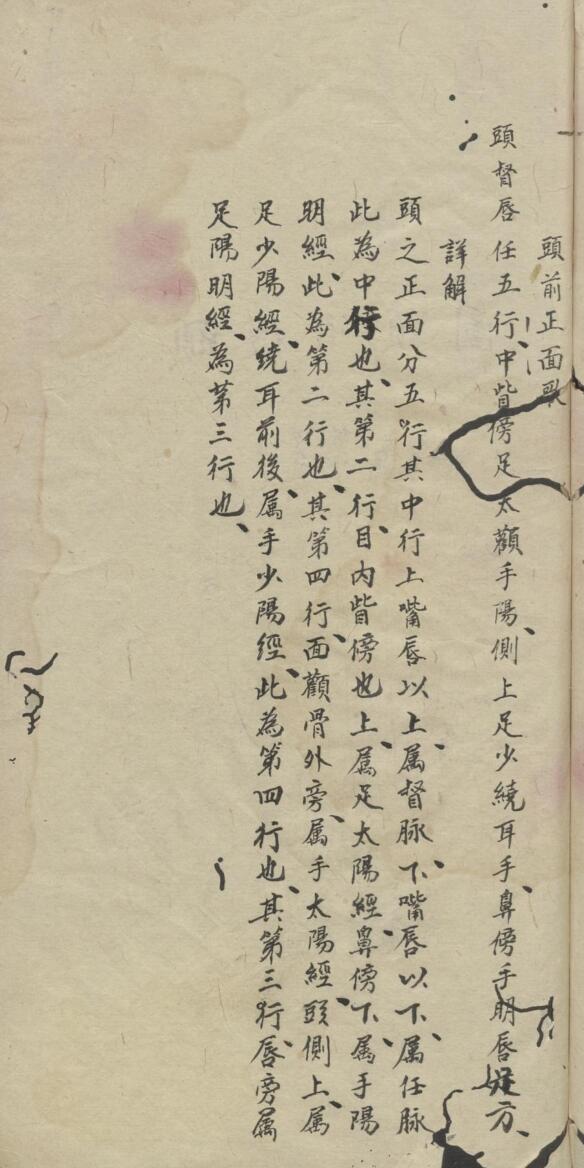 頭前正面歌
頭督唇任五行、中眥傍足太顴手陽、側上足少繞耳手、鼻傍手明唇足方、
詳解
頭之正面分五行其中行上嘴唇以上、属督脉、下嘴唇以下、属任脉
此為中行也、其第二行、目内眥傍也上、属足太陽經、鼻傍下、属手陽
明經、此為第二行也、其第四行、面顴骨外旁、属手太陽經、頭側上、属
足少陽經、繞耳前後、属手少陽經、此為第四行也、其第三行唇旁属
足陽明經、為苐三行也、